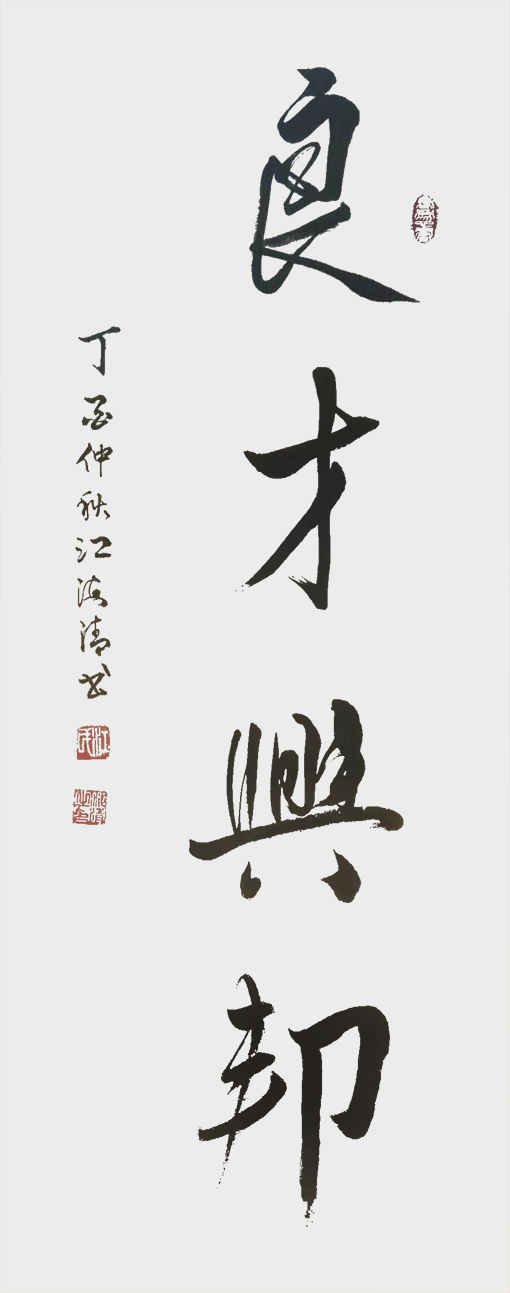 良才興邦
丁酉仲秋江海清书